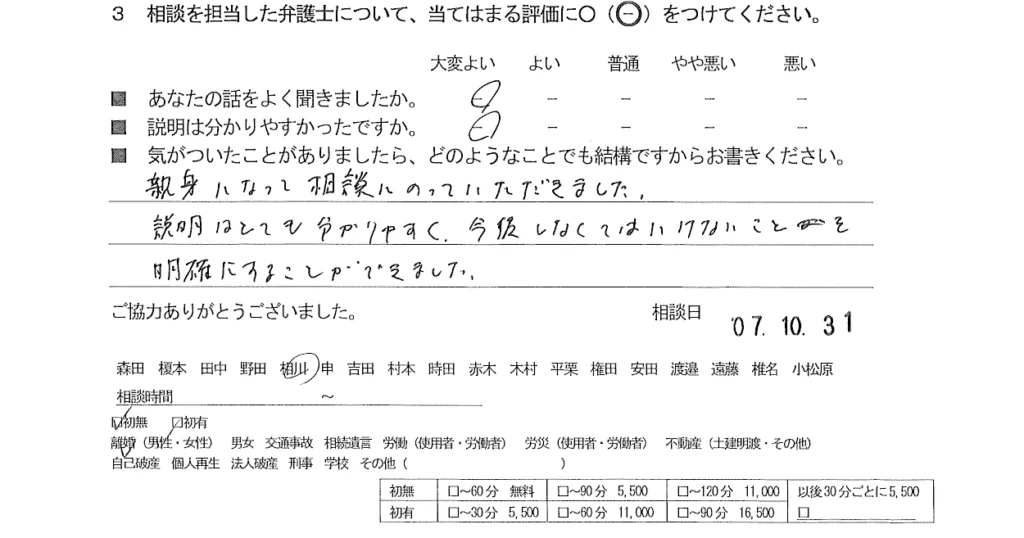 3 相談を担当した弁護士について、当てはまる評価に○（㊀）をつけてください。
大変よい よい 普通 やや悪い 悪い
■ あなたの話をよく聞きましたか。 － － － － －
■ 説明は分かりやすかったですか。 － － － － －
■ 気がついたことがありましたら、どのようなことでも結構ですからお書きください。
親身になって相談にのっていただきました。
説明はとても分かりやすく、今後しなくてはいけないことを
明確にすることができました。
ご協力ありがとうございました。 相談日 '07.10.31
森田 榎本 田中 野田 相川 申 吉田 村本 時田 赤木 木村 平栗 権田 安田 渡邉 遠藤 椎名 小松原
相談時間 ～
□初無 □初有
離婚（男性・女性） 男女 交通事故 相続遺言 労働（使用者・労働者） 労災（使用者・労働者） 不動産（土建明渡・その他）
自己破産 個人再生 法人破産 刑事 学校 その他（ ）
初無 □～60分 無料 □～90分 5,500 □～120分 11,000 以後30分ごとに5,500
初有 □～30分 5,500 □～60分 11,000 □～90分 16,500 □